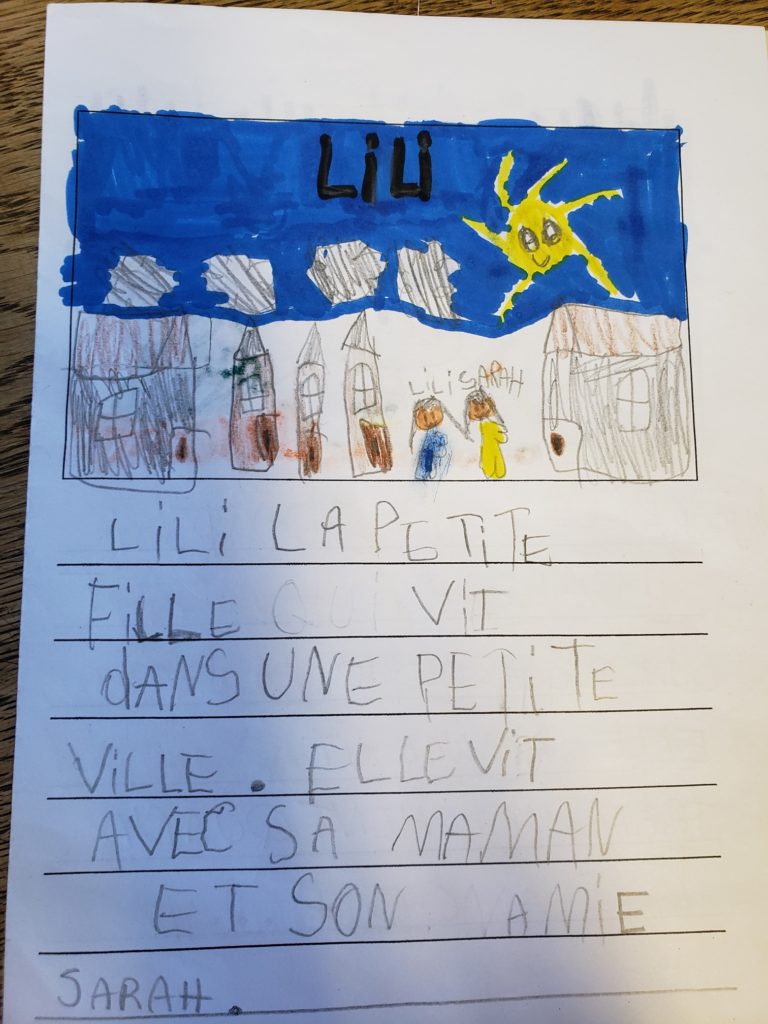 LiLi
LiLi SARAH
LiLi LA PETiTE
FiLLE QUi ViT
dANS UNE PETiTE
ViLLE. ELLE ViT
AVEC SA MAMAN
ET SON AMiE
SARAH.